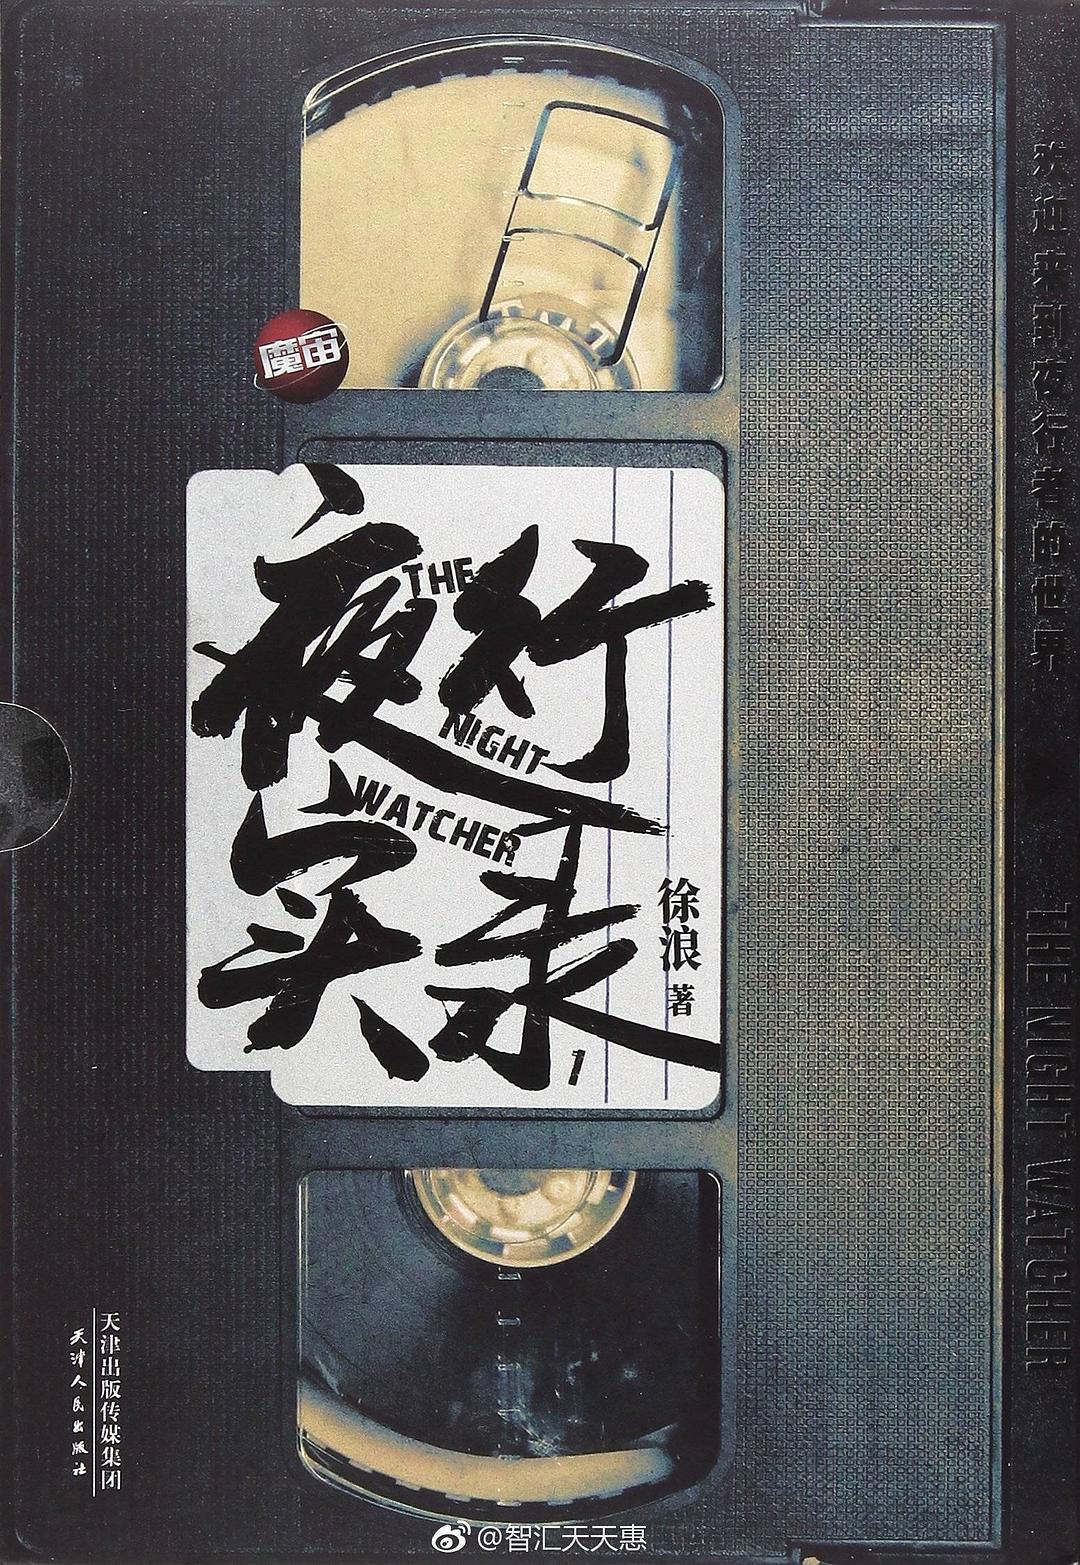 魔宙
夜行
实录
THE
NIGHT
WATCHER
1
徐浪 著
欢迎来到夜行者的世界
THE NIGHT WATCHER
天津出版传媒集团
天津人民出版社
@智汇天天惠